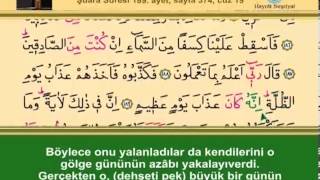 Şuara Suresi 189. ayet, sayfa 374, cüz 19
Hayrât Neşriyat
فَاَسْقِطْ عَلَيْنَا كِسَفًا مِنَ السَّمَٓاءِ اِنْ كُنْتَ مِنَ الصَّادِقٖينَ
قَالَ رَبّٖٓي اَعْلَمُ بِمَا تَعْمَلُونَ فَكَذَّبُوهُ فَاَخَذَهُمْ عَذَابُ يَوْمِ
الظُّلَّةِ اِنَّهُ كَانَ عَذَابَ يَوْمٍ عَظٖيمٍ اِنَّ فٖي ذٰلِكَ لَاٰيَةً وَمَا
Böylece onu yalanladılar da kendilerini o
gölge gününün azâbı yakalayıverdi.
Gerçekten o, (dehşeti pek) büyük bir günün